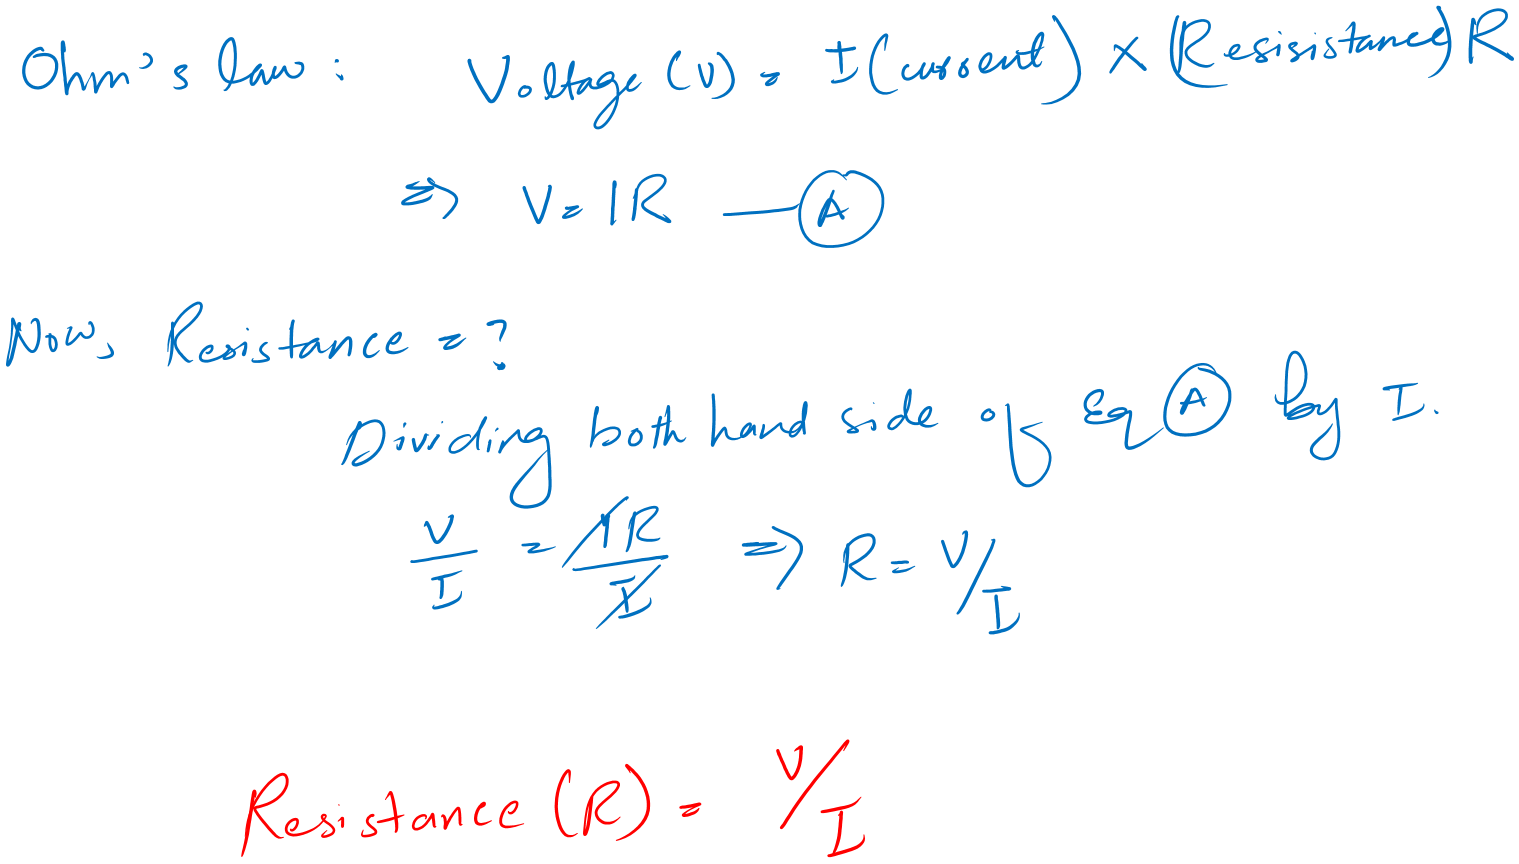 Ohm's law : Voltage (V) = I (current) × (Resisistance) R
⇒ V = IR — A
Now, Resistance = ?
Dividing both hand side of Eq A by I.
V/I = IR/I ⇒ R = V/I
Resistance (R) = V/I